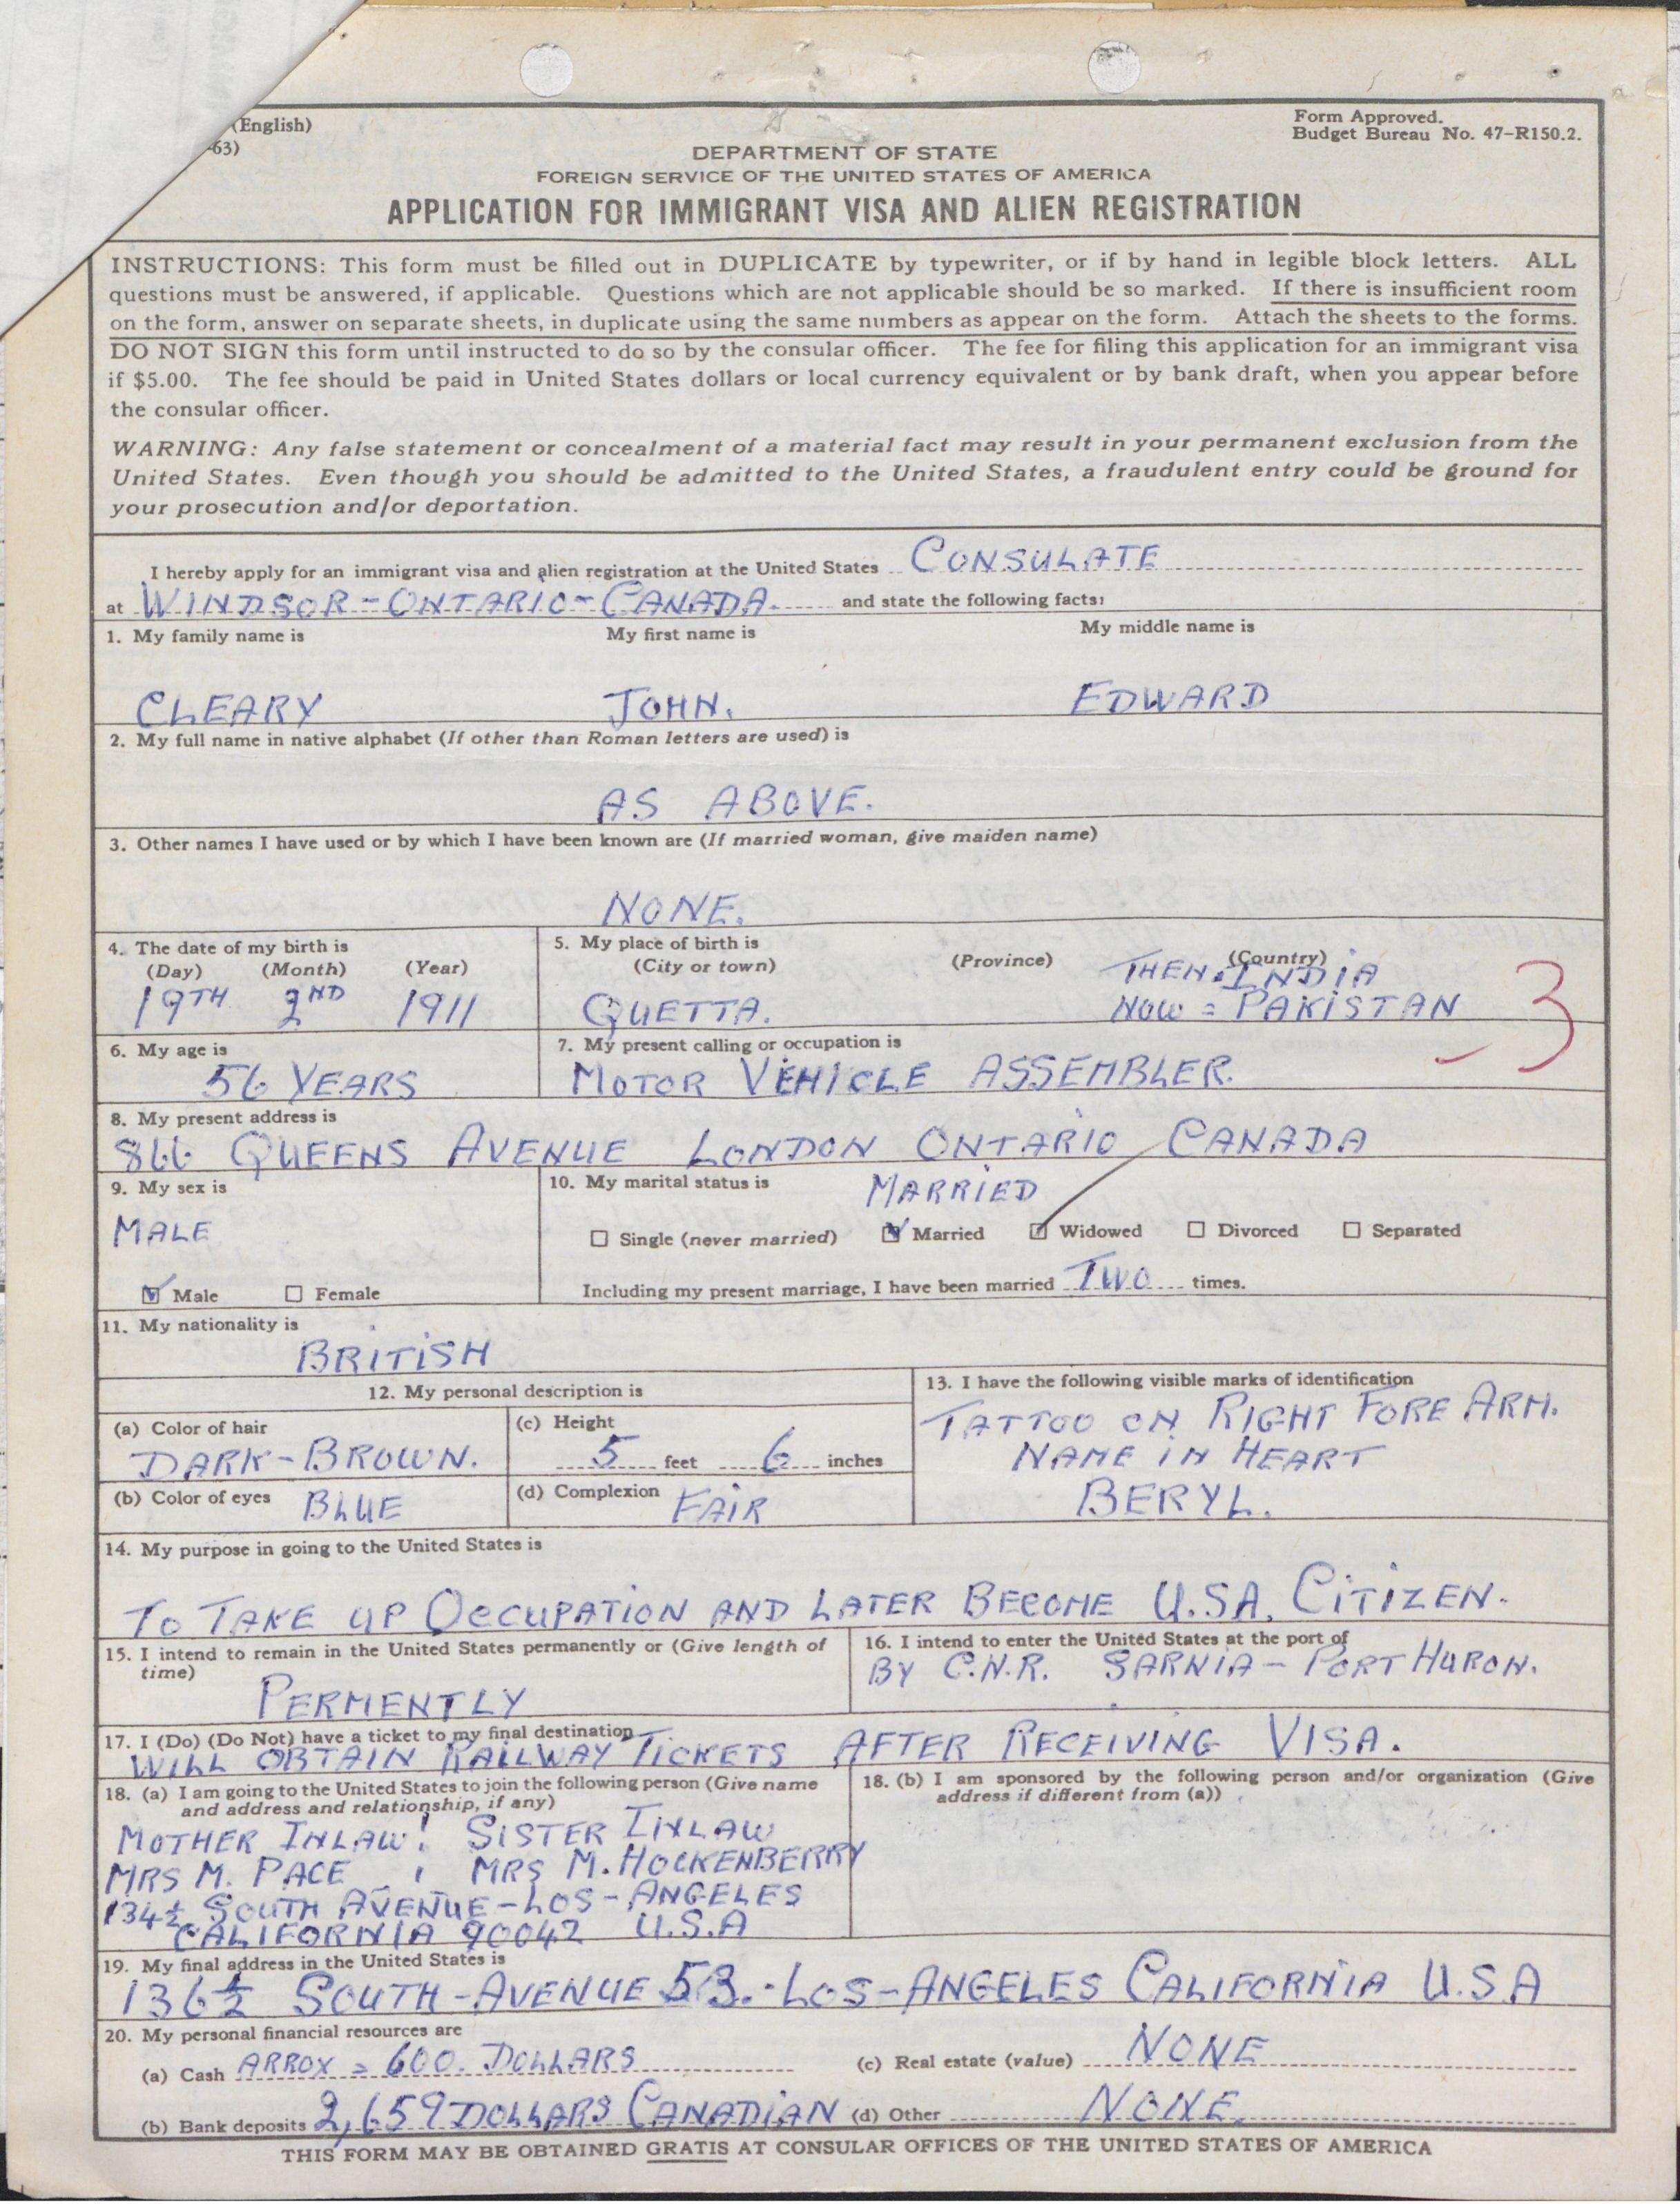 (English)
-63)
Form Approved.
Budget Bureau No. 47-R150.2.
DEPARTMENT OF STATE
FOREIGN SERVICE OF THE UNITED STATES OF AMERICA
APPLICATION FOR IMMIGRANT VISA AND ALIEN REGISTRATION
INSTRUCTIONS: This form must be filled out in DUPLICATE by typewriter, or if by hand in legible block letters. ALL
questions must be answered, if applicable. Questions which are not applicable should be so marked. If there is insufficient room
on the form, answer on separate sheets, in duplicate using the same numbers as appear on the form. Attach the sheets to the forms.
DO NOT SIGN this form until instructed to do so by the consular officer. The fee for filing this application for an immigrant visa
if $5.00. The fee should be paid in United States dollars or local currency equivalent or by bank draft, when you appear before
the consular officer.
WARNING: Any false statement or concealment of a material fact may result in your permanent exclusion from the
United States. Even though you should be admitted to the United States, a fraudulent entry could be ground for
your prosecution and/or deportation.
I hereby apply for an immigrant visa and alien registration at the United States CONSULATE
at WINDSOR-ONTARIO-CANADA. and state the following facts:
1. My family name is My first name is My middle name is
CLEARY JOHN. EDWARD
2. My full name in native alphabet (If other than Roman letters are used) is
AS ABOVE.
3. Other names I have used or by which I have been known are (If married woman, give maiden name)
NONE.
4. The date of my birth is 5. My place of birth is
(Day) (Month) (Year) (City or town) (Province) (Country)
THEN. INDIA
19TH 2ND 1911 QUETTA. NOW = PAKISTAN 3
6. My age is 7. My present calling or occupation is
56 YEARS MOTOR VEHICLE ASSEMBLER.
8. My present address is
866 QUEENS AVENUE LONDON ONTARIO CANADA
9. My sex is 10. My marital status is MARRIED
MALE
Single (never married) Married Widowed Divorced Separated
Male Female Including my present marriage, I have been married TWO times.
11. My nationality is
BRITISH
12. My personal description is 13. I have the following visible marks of identification
(a) Color of hair (c) Height TATTOO ON RIGHT FORE ARM.
DARK-BROWN. 5 feet 6 inches NAME IN HEART
(b) Color of eyes BLUE (d) Complexion FAIR BERYL.
14. My purpose in going to the United States is
TO TAKE UP OCCUPATION AND LATER BECOME U.S.A. CITIZEN.
15. I intend to remain in the United States permanently or (Give length of
time)
PERMENTLY
16. I intend to enter the United States at the port of
BY C.N.R. SARNIA - PORT HURON.
17. I (Do) (Do Not) have a ticket to my final destination
WILL OBTAIN RAILWAY TICKETS AFTER RECEIVING VISA.
18. (a) I am going to the United States to join the following person (Give name
and address and relationship, if any)
MOTHER INLAW! SISTER INLAW
MRS M. PACE MRS M. HOCKENBERRY
134½ SOUTH AVENUE-LOS-ANGELES
CALIFORNIA 90042 U.S.A
18. (b) I am sponsored by the following person and/or organization (Give
address if different from (a))
19. My final address in the United States is
136½ SOUTH-AVENUE 53.-LOS-ANGELES CALIFORNIA U.S.A
20. My personal financial resources are
(a) Cash ARROX = 600. DOLLARS (c) Real estate (value) NONE
(b) Bank deposits 2,659 DOLLARS CANADIAN (d) Other NONE.
THIS FORM MAY BE OBTAINED GRATIS AT CONSULAR OFFICES OF THE UNITED STATES OF AMERICA